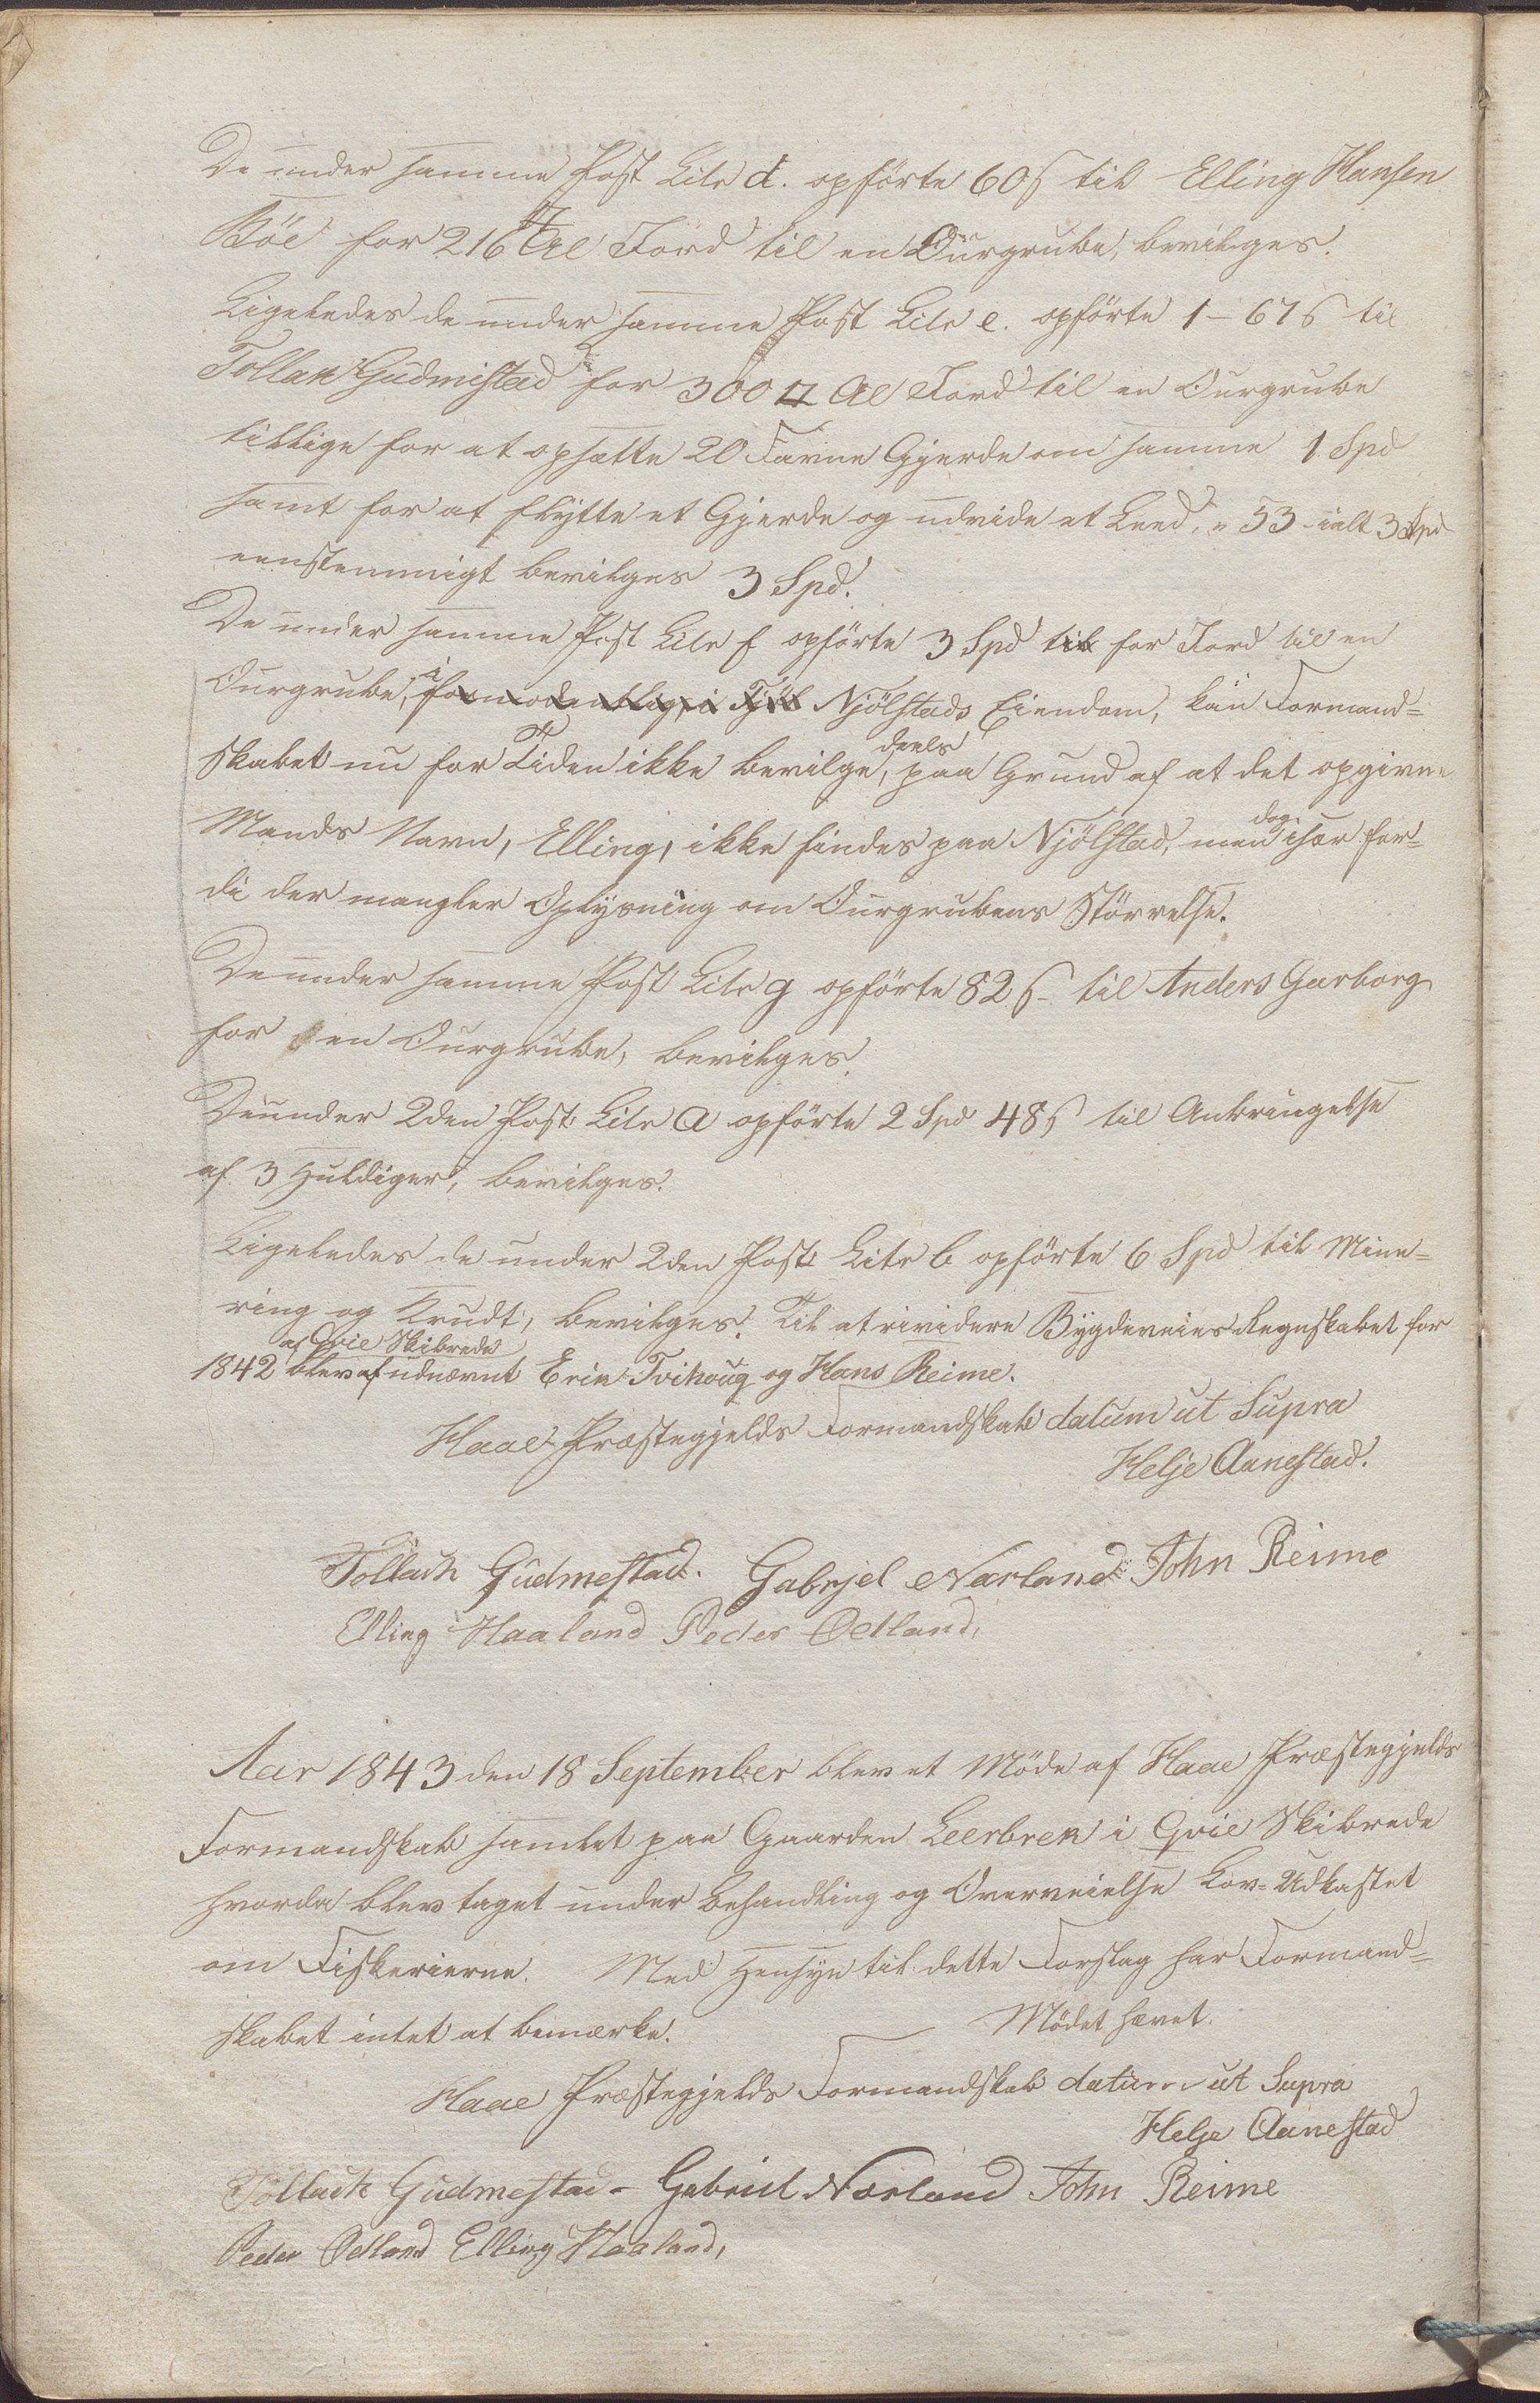 De under samme Post Litr d. opförte 60 s til Elling Hansen
Böe for 216 □ Al Jord til en Ourgrube, bevilges.
Ligeledes de under samme Post Litr e. opförte 1 - 67 s til
Tollak Gudmistad for 300 □ Al Jord til en Ourgrube
tillige for at opsætte 20 Favne Gjerde om samme 1 Spd
samt for at flytte et Gjerde og udvide et Leed, " 53 - ialt 3 Spd
eenstemmigt bevilges 3 Spd.
De under samme Post Litr f opförte 3 Spd til for Jord til en
Ourgrube, i formodentlig i Tjöl Njölstads Eiendom, kan Formand=
skabet nu for Tiden ikke bevilge, deels paa Grund af at det opgivne
Mands Navn, Elling, ikke findes paa Njölstad, men dog især for=
di der mangler Oplysning om Ourgrubens Störrelse.
De under samme Post Litr g opförte 82 s til Anders Garborg
for en Ourgrube, bevilges.
De under 2den Post Litr a opförte 2 Spd 48 s til Anbringelse
af 3 Huldiger, bevilges.
Ligeledes de under 2den Post Litr b opförte 6 Spd til Mine=
ring og Krudt, bevilges. Til at rividere Bygdeveies Regnskabet for
af Qvie Skibrede
1842 blev af udnævnt Erik Tvihoug og Hans Reime.
Haae Præstegjelds Formandskab datum ut Supra
Helje Aanestad.
Tollach Gudmestad. Gabrjel Nærland John Reime
Elling Haaland Peder Ödland,
Aar 1843 den 18 September blev et Möde af Haae Præstegjelds
Formandskab samlet paa Gaarden Leerbrek i Qvie Skibrede
hvorda blev taget under Behandling og Overveielse Lov-Udkastet
om Fiskerierne. Med Hensyn til dette Forslag har Formand=
skabet intet at bemærke. Mödet hævet.
Haae Præstegjelds Formandskab datum ut Supra
Helje Aanestad
Tollach Gudmestad - Gabriel Nærland John Reime
Peder Ödland Elling Haaland,